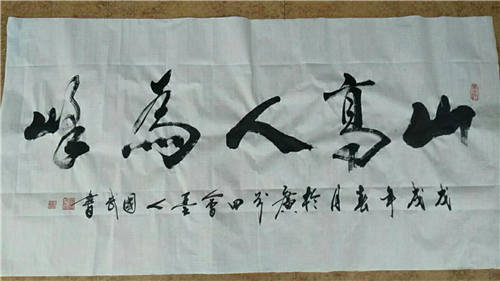 山高人為峰
戊戌年春月於廣东四會墨人國武書